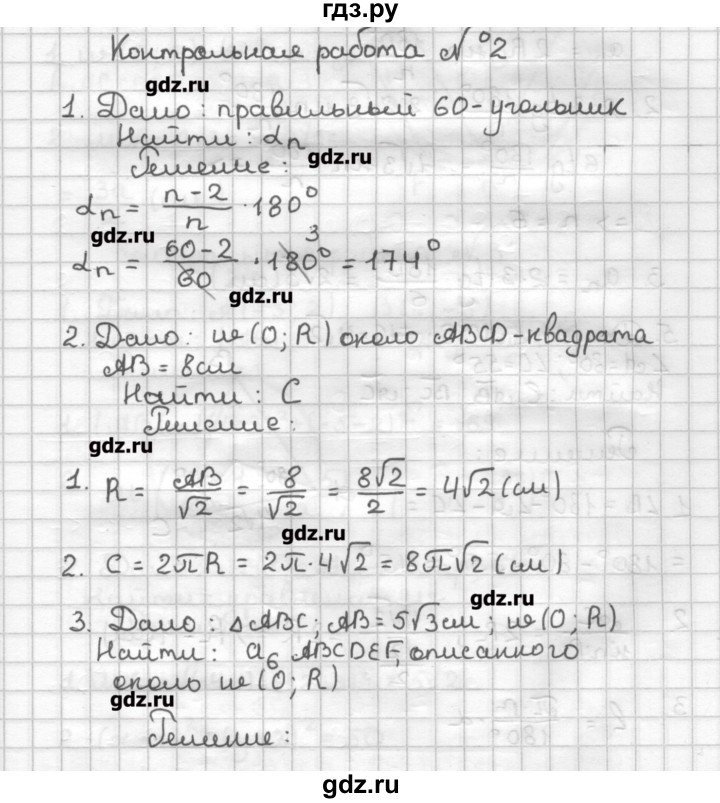 гдз.ру
Контрольная работа №2
gdz.ru
1. Дано: правильный 60-угольник
Найти: αn
gdz.ru
Решение:
αn = n-2/n · 180°
gdz.ru
αn = 60-2/60 · 180° 3 = 174°
gdz.ru
2. Дано: w(O; R) около ABCD-квадрата
AB = 8см
Найти: C
Решение:
gdz.ru
1. R = AB/√2 = 8/√2 = 8√2/2 = 4√2 (см)
gdz.ru
2. C = 2πR = 2π·4√2 = 8π√2 (см)
gdz.ru
3. Дано: △ABC; AB = 5√3см; w(O; R)
Найти: a6 ABCDEF, описанного
около w(O; R)
gdz.ru
Решение:
gdz.ru